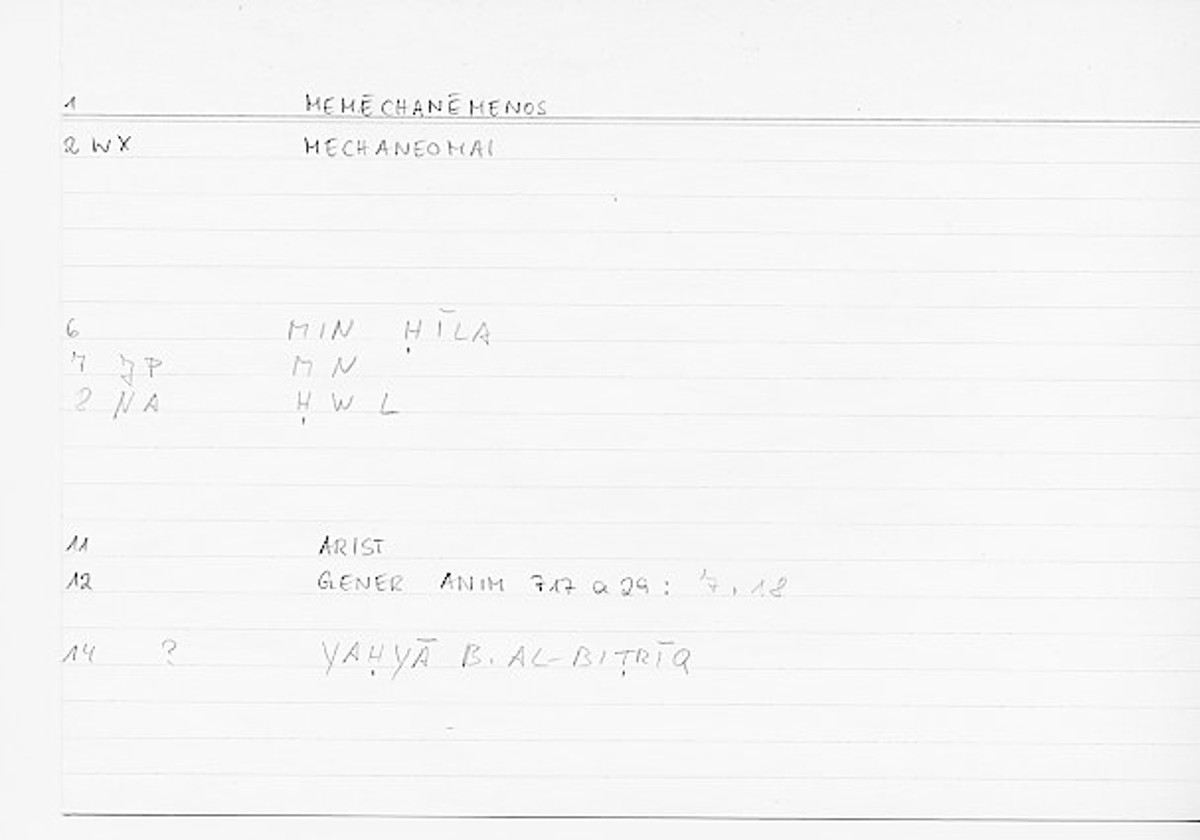 1 MEMĒCHANĒMENOS
2 WX MECHANEOMAI
6 MIN ḤĪLA
7 JP MN
8 NA ḤWL
11 ARIST
12 GENER ANIM 717 a 29: 7,18
14 ? YAḤYĀ B. AL-BIṬRĪQ